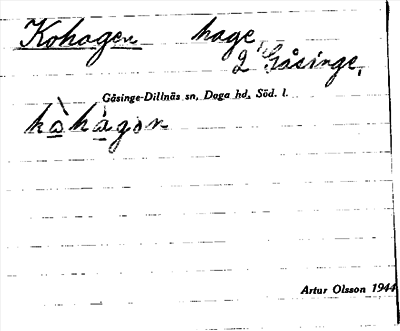 Kohagen hage,
2 Gåsinge,
Gåsinge-Dillnäs sn, Daga hd, Söd. l.
Artur Olsson 1944